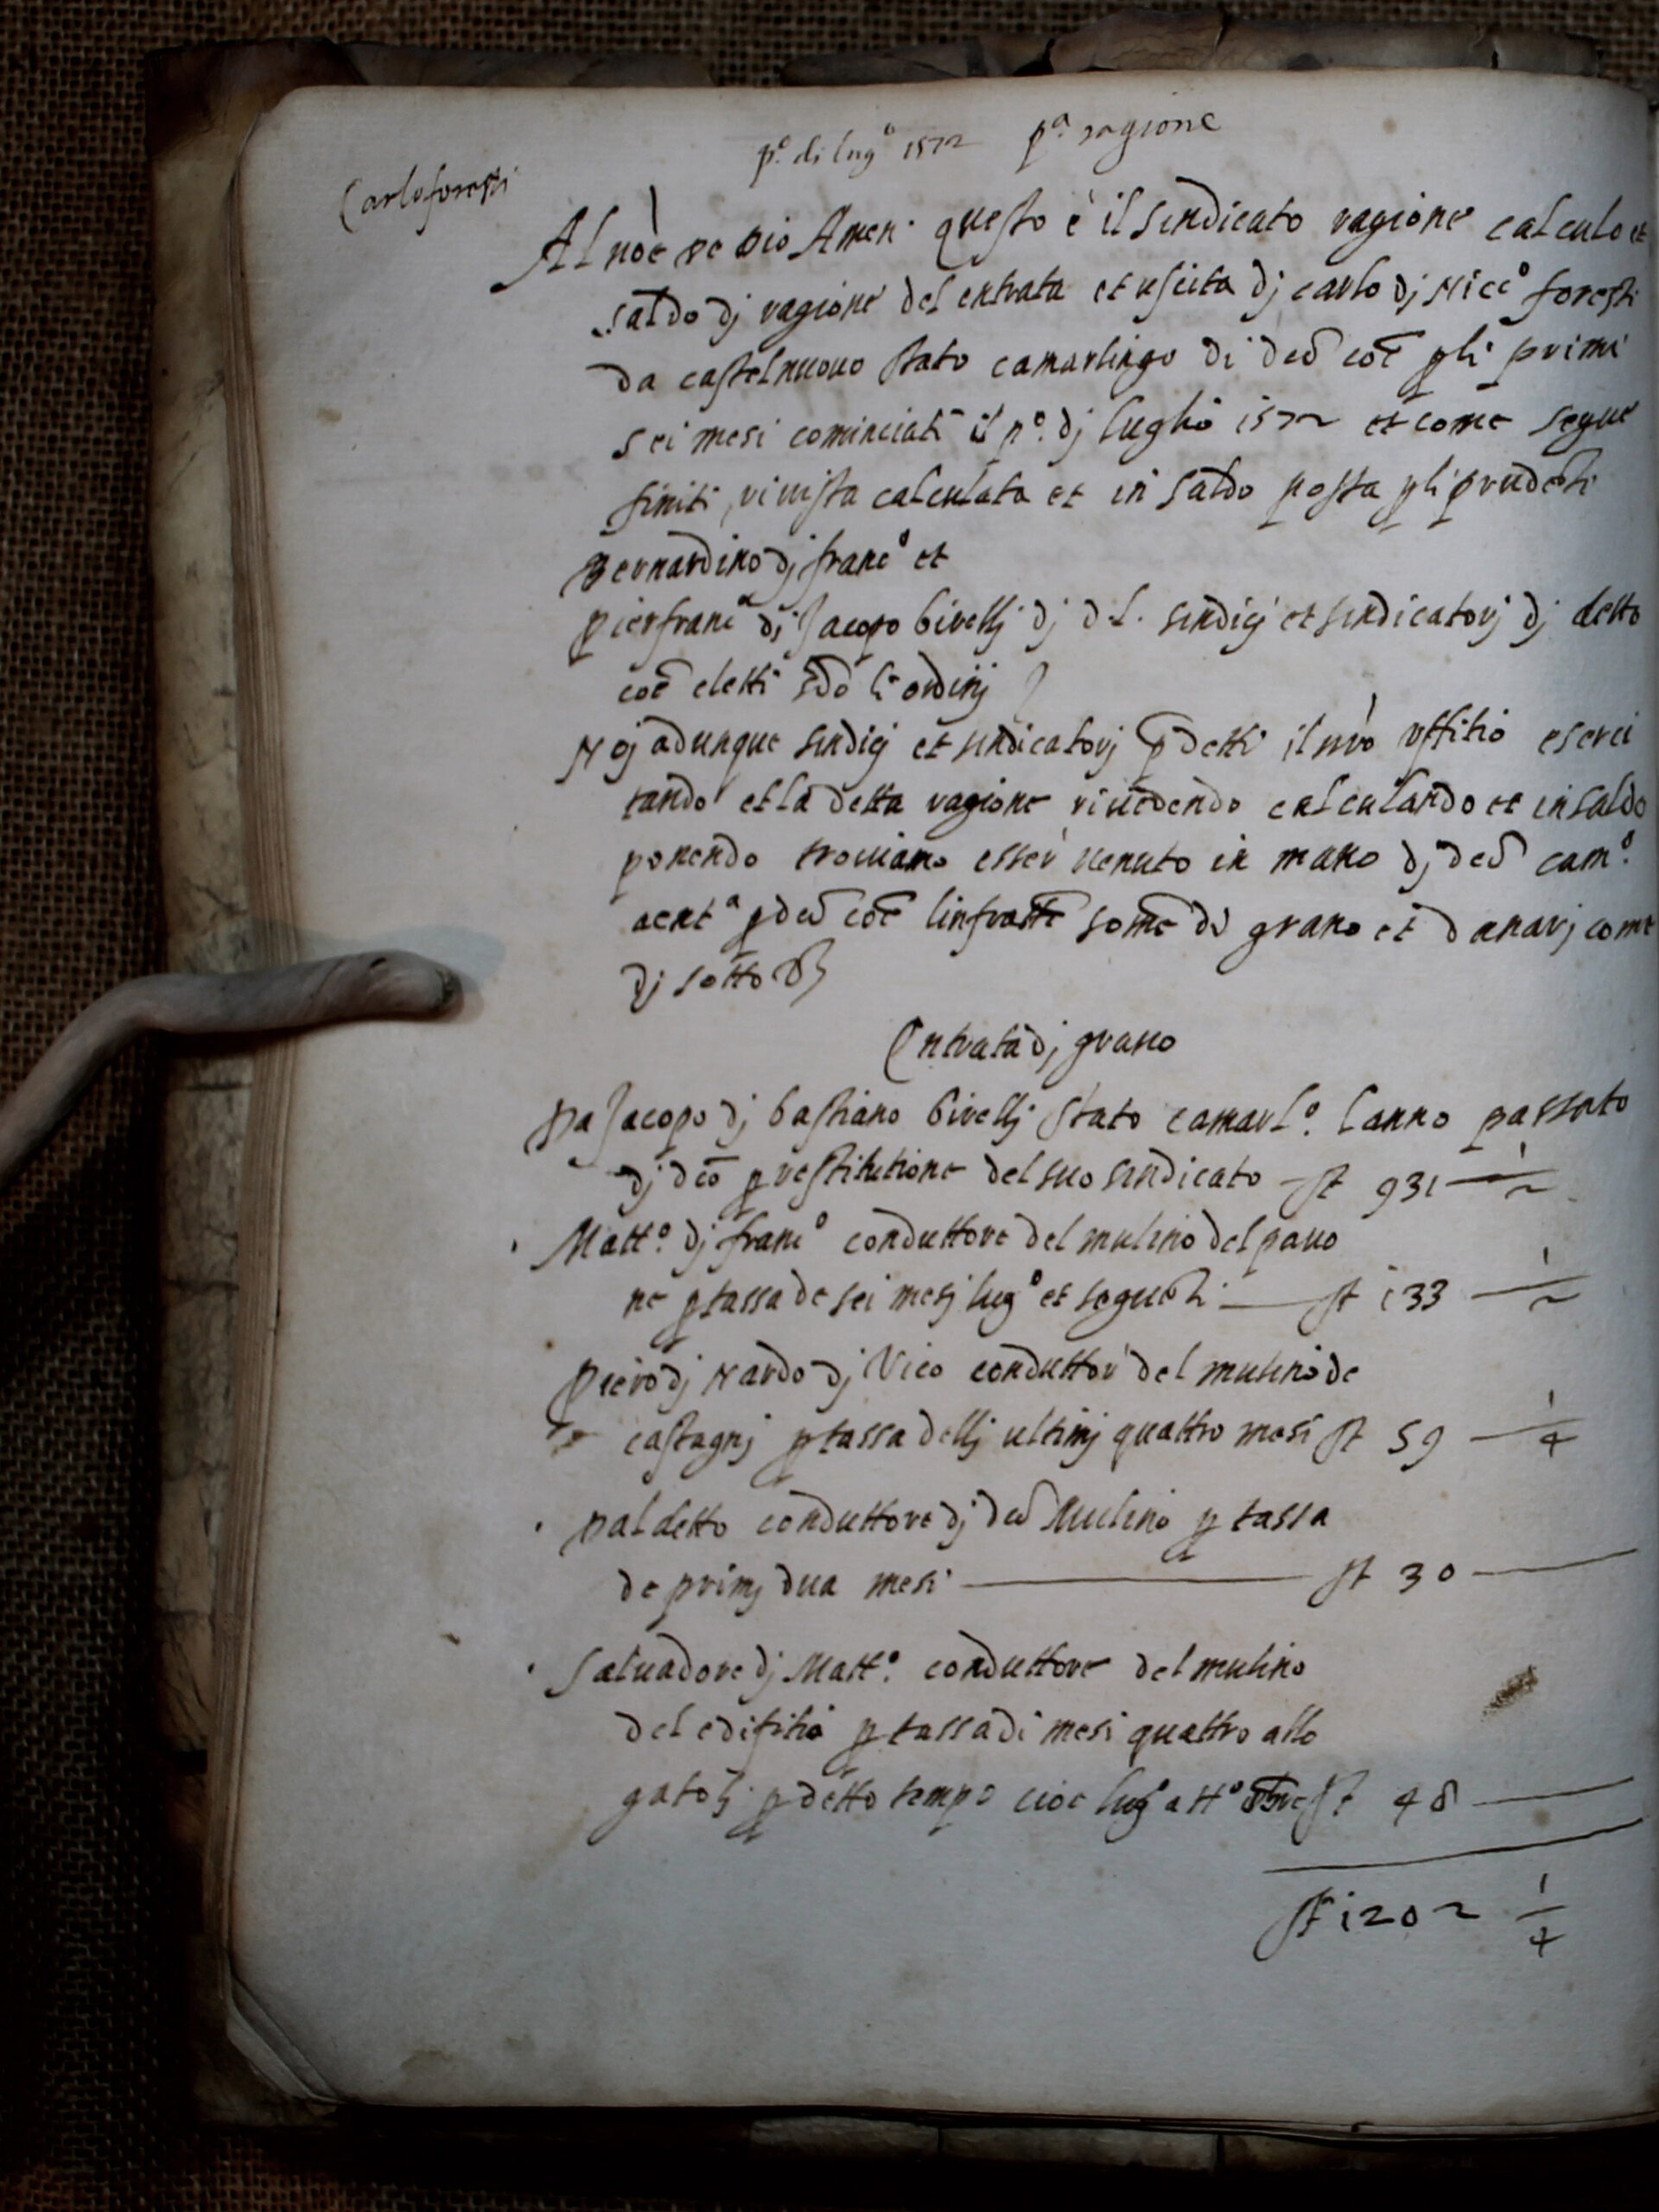 p.º di lug.º 1572 p.ª ragione
Carlo foresti
Al nōe de dio Amen. questo è il sindicato ragione calculo et
saldo dj ragione del entrata et uscita dj carlo dj Nicc.º foresti
da castelnuouo stato camarlingo di dcō coē p gli primi
sei mesi cominciati il p.º dj luglio 1572 et come segue
finiti, riuista calculata et in saldo posta p gli prudēti
Bernardino dj franc.º et
pierfranc.º dj Jacopo birellj dj d.L. sindicj et sindicatorj dj detto
coē eletti s̄do li ordinj
Noj adunque sindicj et sindicatorj p̄detti il nr̄o uffitio eserci
tando et la detta ragione riuedendo calculando et in saldo
ponendo trouiamo esser uenuto in mano dj dcō cam.º
p dcō coē linfratte some dj grano et danarj come
dj sotto
Entrata dj grano
Da Jacopo dj bastiano birellj stato camarl.º lanno passato
dj dcō p restitutione del suo sindicato st 931 1/2
Matt.º dj franc.º conduttore del mulino del pauo
ne p tassa de sei mesj lug.º et seguēti st i33 1/2
piero dj Nardo dj Vico conduttor del mulino de
castagnj p tassa dellj ultimj quattro mesi st 59 1/4
Dal detto conduttore dj dcō Mulino p tassa
de primj dua mesi st 30
Saluadore dj Matt.º conduttore del mulino
del edifitio p tassa di mesi quattro allo
gatolj p detto tempo cioe lug.º a ott.º st 48
st i202 1/4